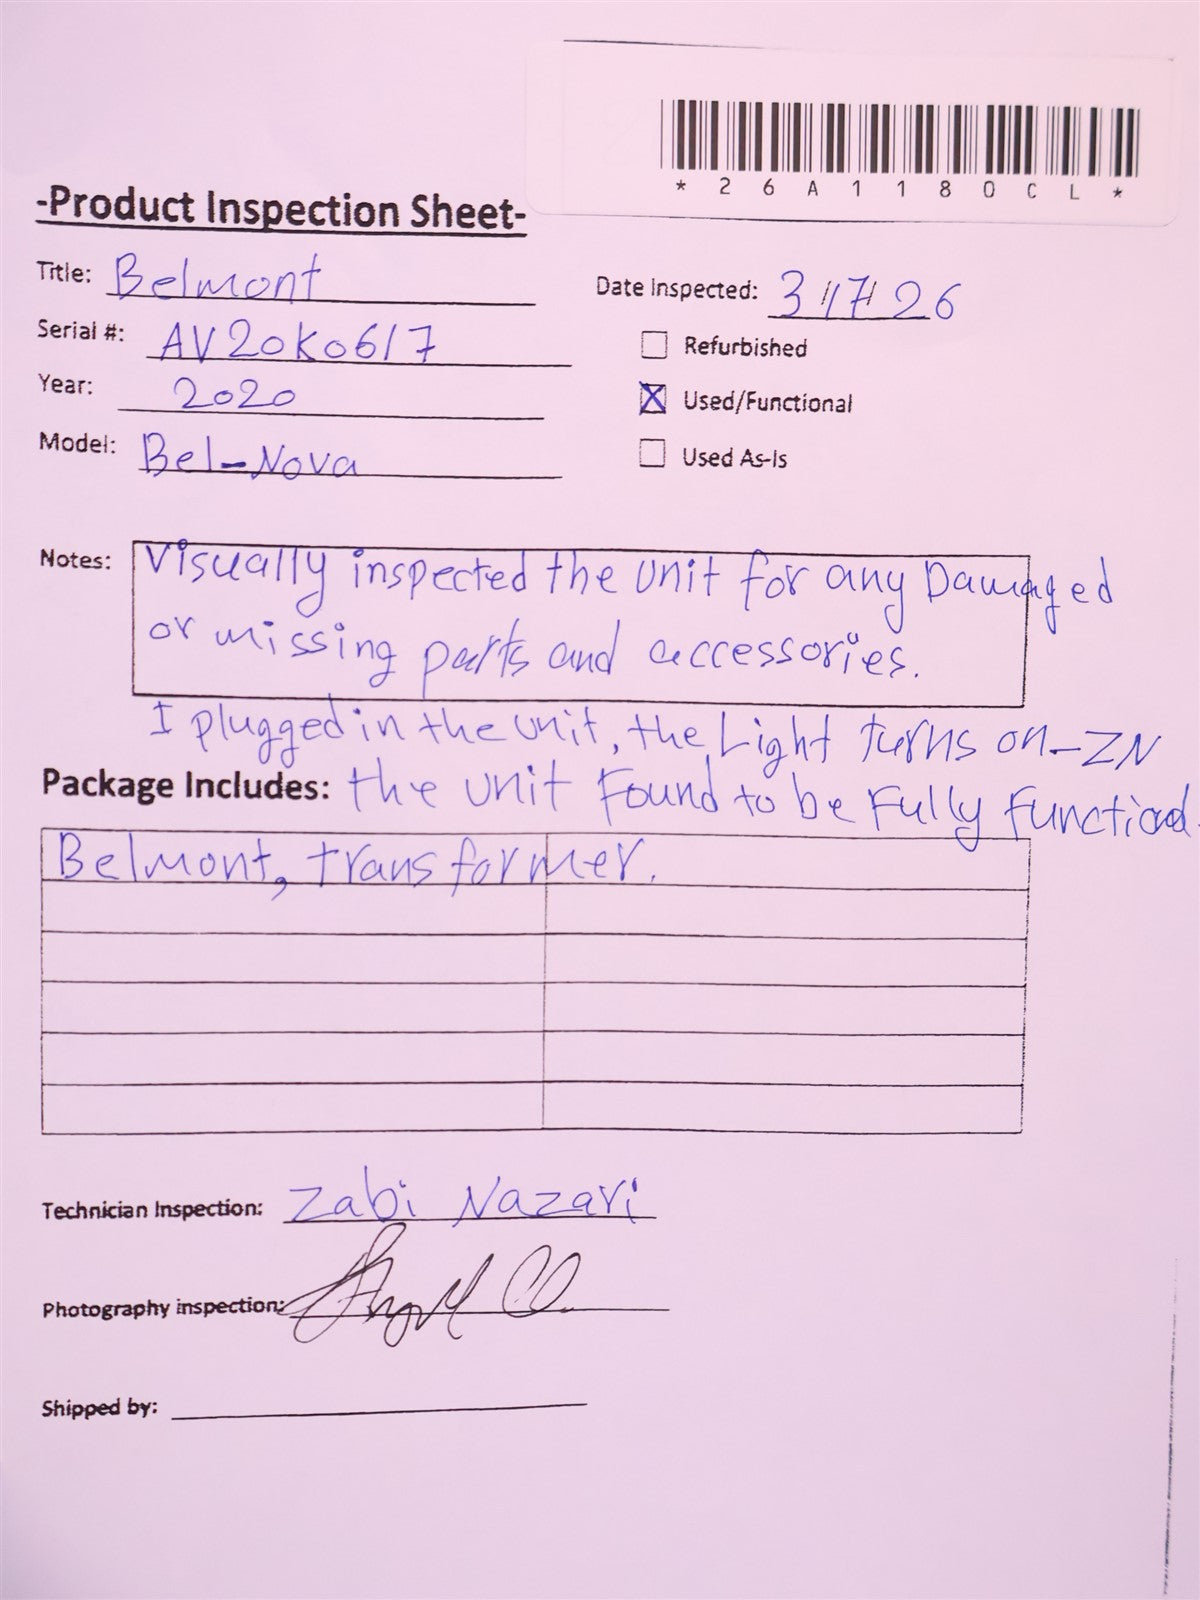 *26A1180CL*
-Product Inspection Sheet-
Title: Belmont
Date Inspected: 3/17/26
Serial #: AV20K0617
Refurbished
Year: 2020
Used/Functional
Model: Bel-Nova
Used As-Is
Notes: Visually inspected the unit for any Damaged
or missing parts and accessories.
I plugged in the unit, the Light turns on-ZN
Package Includes: the unit Found to be Fully Functional
Belmont, transformer.
Technician Inspection: Zabi Nazari
Photography inspection:
Shipped by: